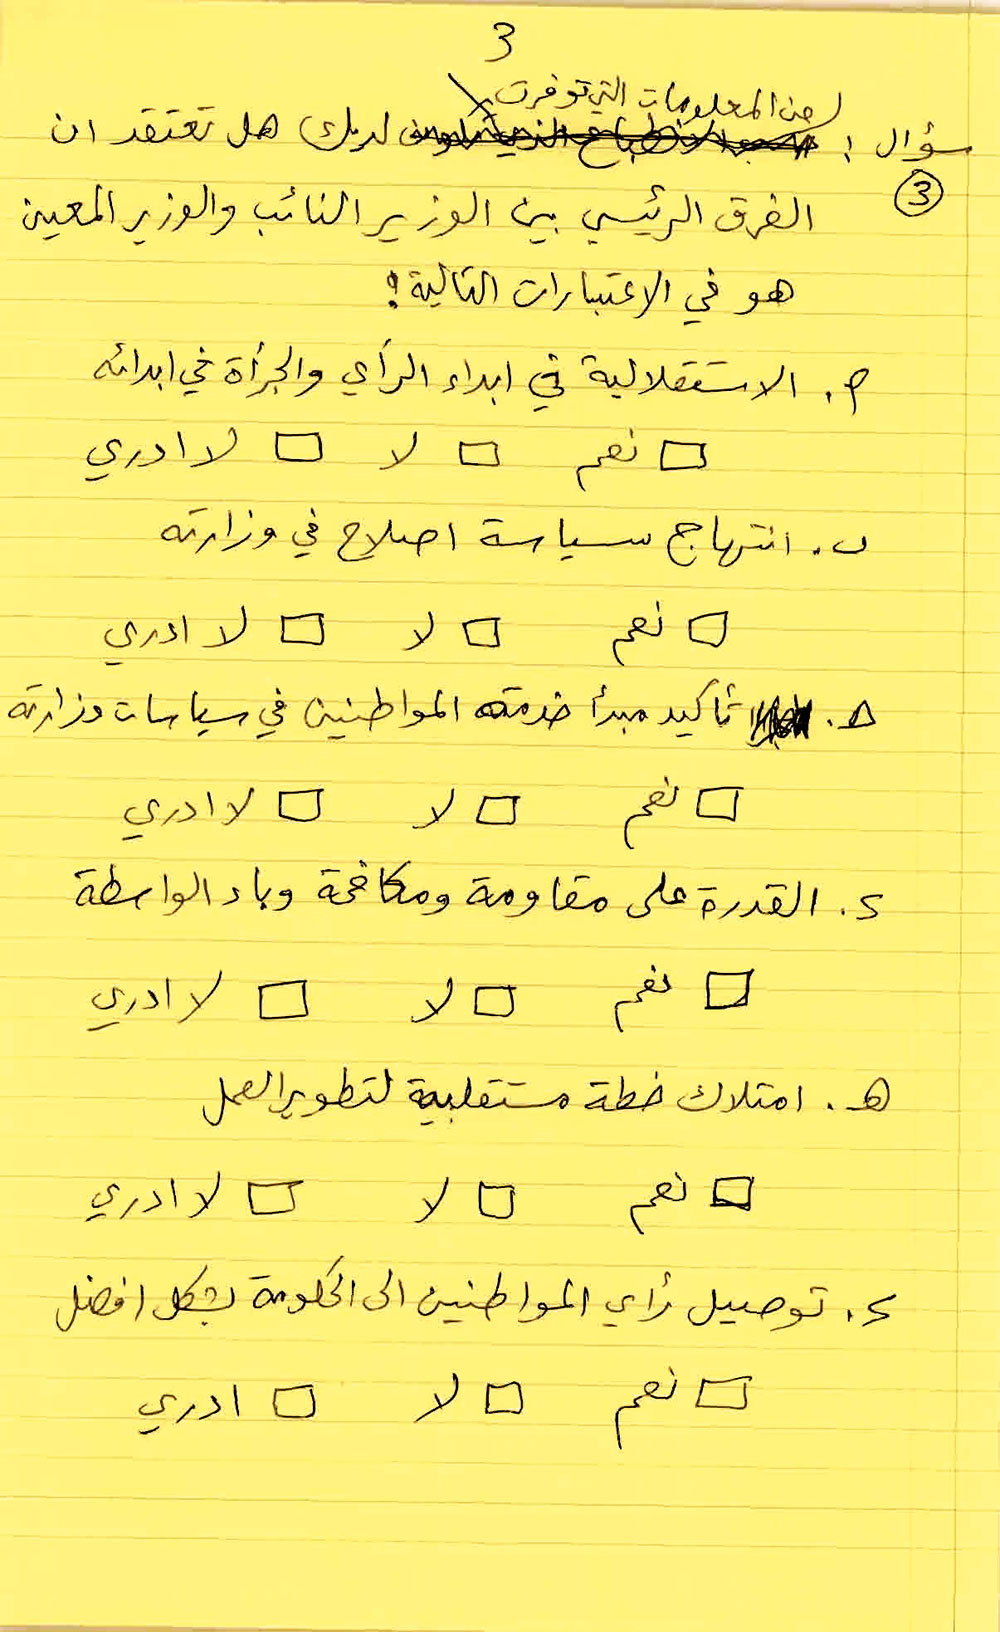 3
من المعلومات التي توفرت
سؤال : لديك هل تعتقد ان
③
الفرق الرئيسي بين الوزير النائب والوزير المعين
هو في الاعتبارات التالية؟
م. الاستقلالية في ابداء الرأي والجرأة في ابدائه
□ نعم □ لا □ لا ادري
ب. انتهاج سياسة اصلاح في وزارته
□ نعم □ لا □ لا ادري
تأكيد مبدأ خدمته المواطنين في سياسات وزارته
□ نعم □ لا □ لا ادري
د. القدرة على مقاومة ومكافحة وباء الواسطة
□ نعم □ لا □ لا ادري
هـ. امتلاك خطة مستقلبية لتطوير العمل
□ نعم □ لا □ لا ادري
د. توصيل رأي المواطنين الى الحكومة بشكل افضل
□ نعم □ لا □ ادري